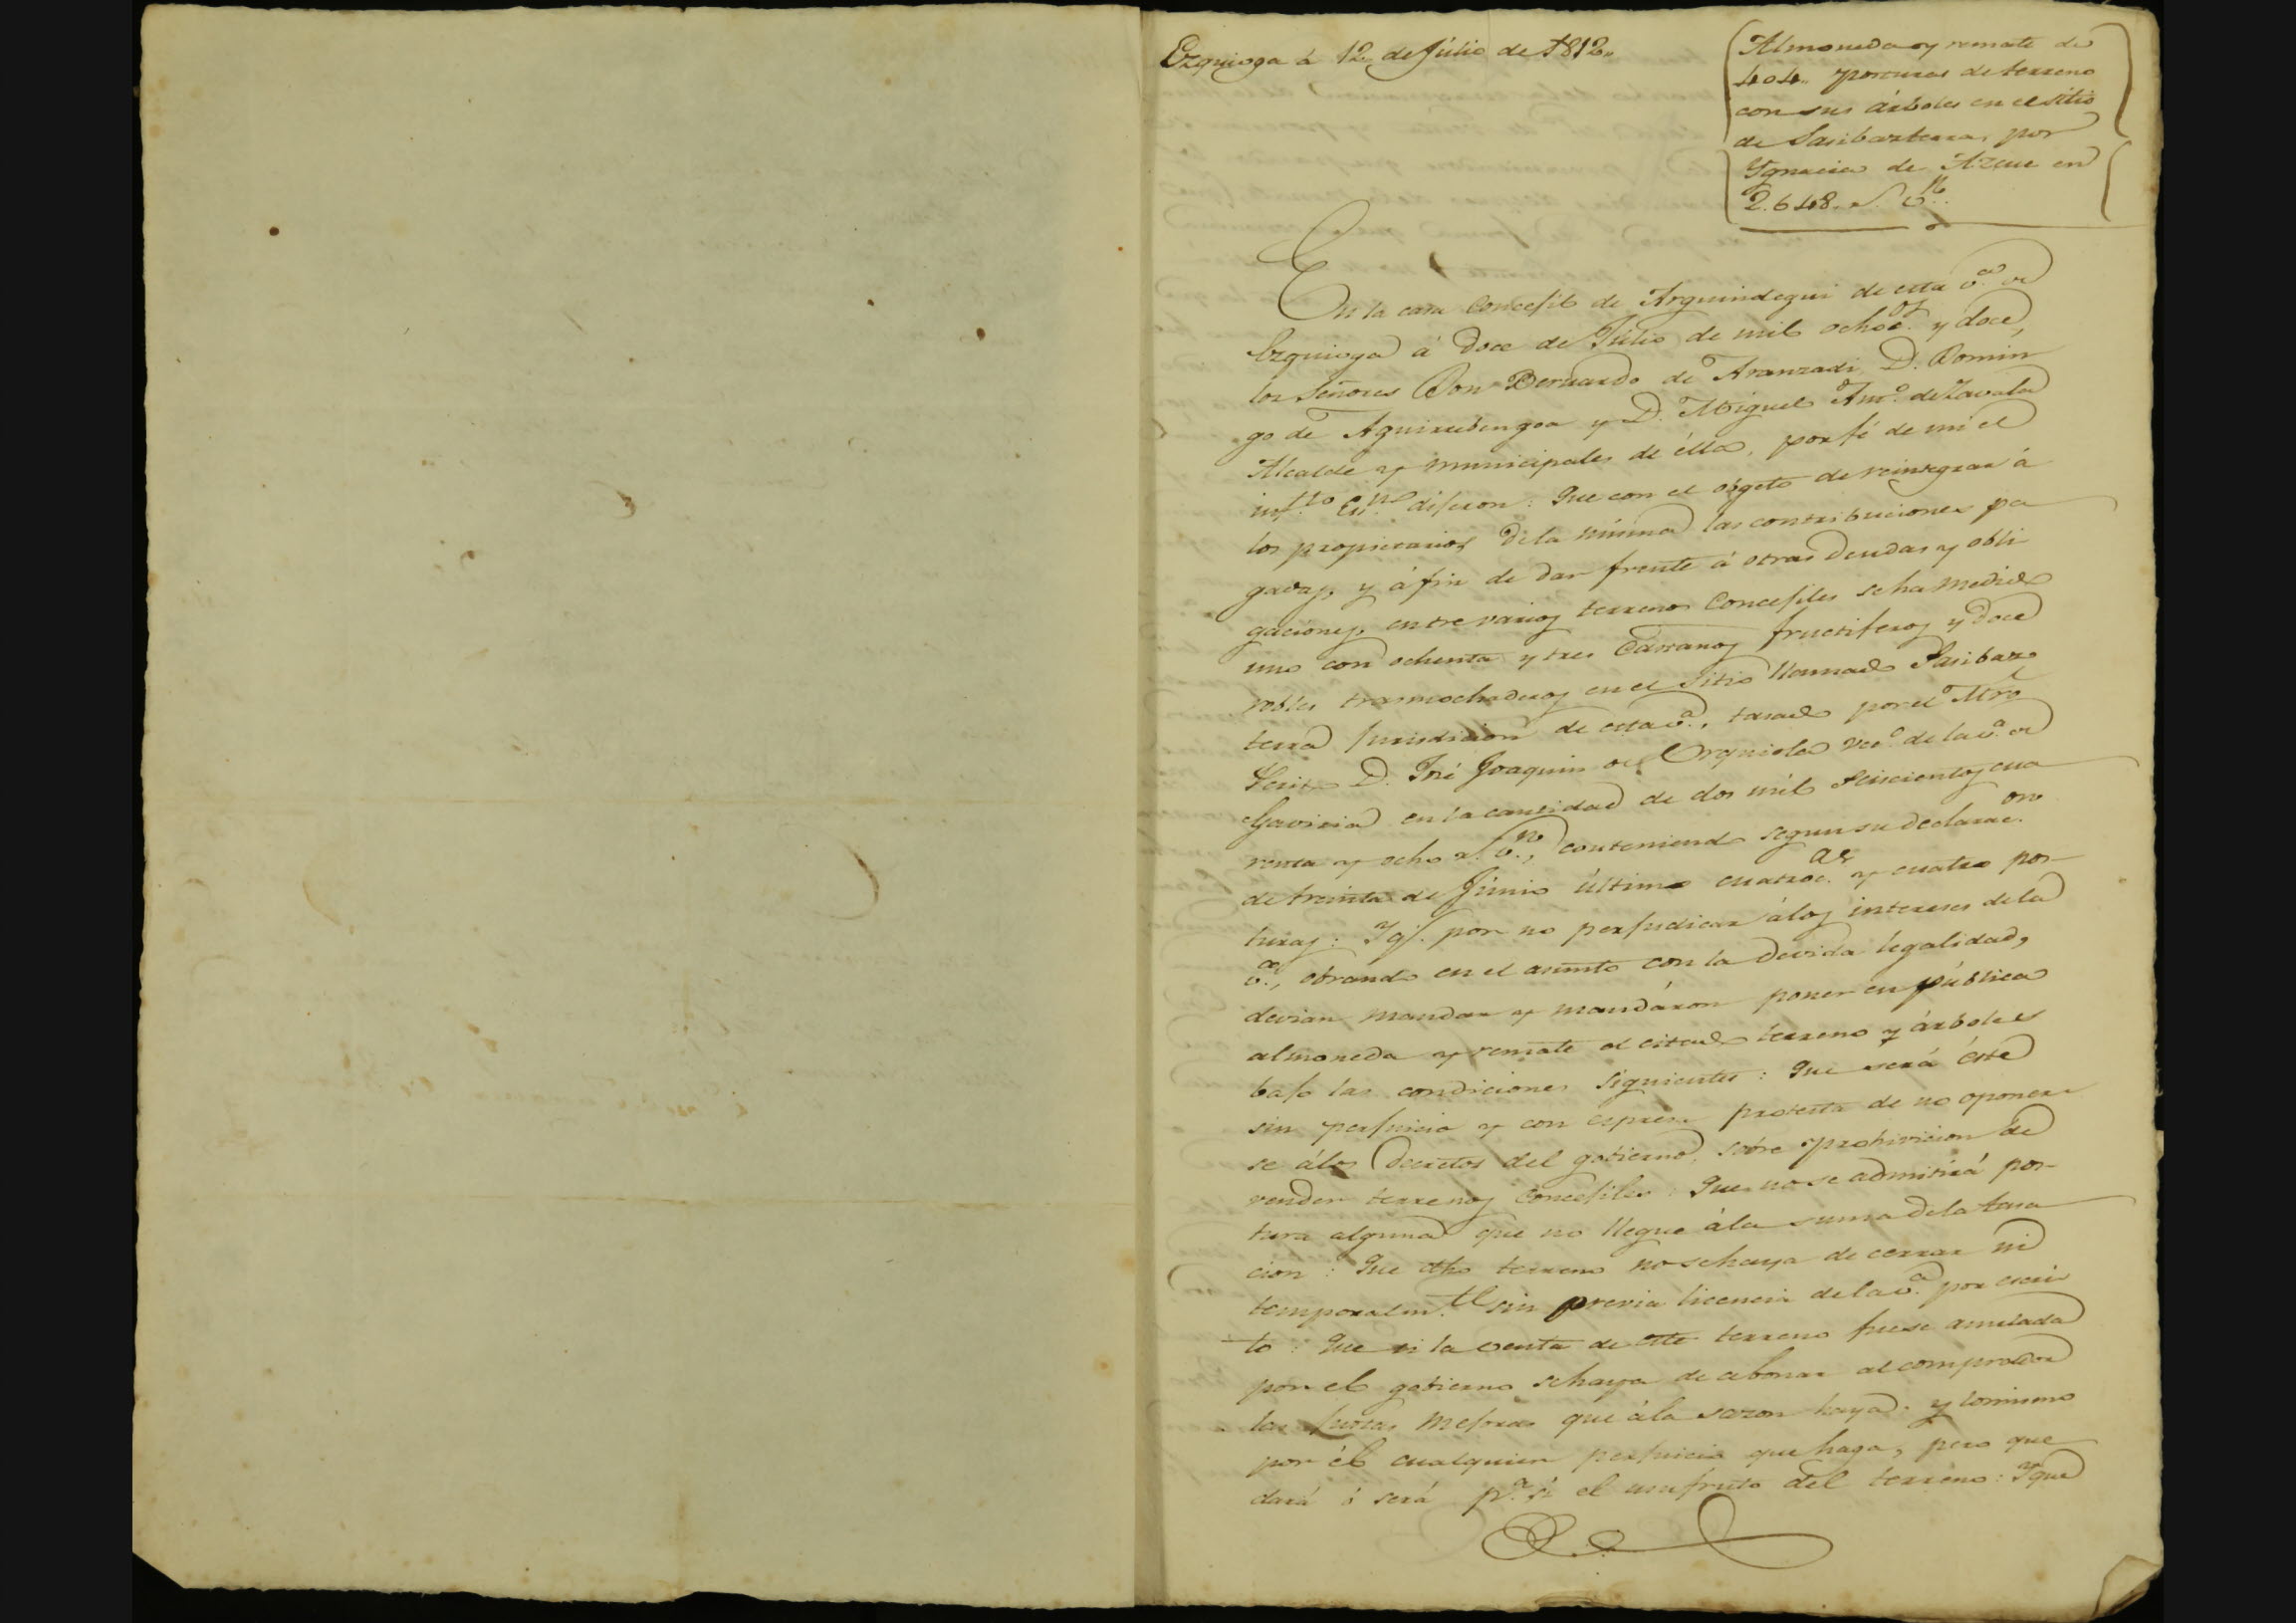 Ezquioga á 12 de Júlio de 1812.
Almoneda y remate de
404. posturas de terreno
con sus árboles en el sitio
de Sasibarterra, por
Ygnacio de Azcue en
2.648. r.s v.n
En la casa Concejil de Arguindegui de esta v.a de
Ezquioga á doce de Júlio de mil ochoc.os y doce,
los Señores Don Bernardo de Aranzadi, D. Domin
go de Aguirrebengoa y D. Miguel Ant.o de Zavala
Alcalde y municipales de élla, por fé de mi el
inf.to Es.no dijeron: Que con el obgeto de reintegrar á
los propietarios de la misma las contribuciones pa
gadas, y á fin de dar frente á otras deudas y obli
gaciones, entre varios terrenos Concejiles se ha medido
uno con ochenta y tres Castaños fructiferos y doce
robles trasmochaderos en el sitio llamado Sasibar
terra jurisdicion de esta v.a, tasado por el Mro
Perito D. José Joaquin de Orquiola vec.o de la v.a de
Gaviria en la cantidad de dos mil seiscientos cua
renta y ocho r.s v.n, conteniendo segun su declarac.on
de treinta de Júnio último cuatroc.as y cuatro pos-
turas: Y q.e por no perjudicar á los intereses de la
v.a, obrando en el asunto con la devida legalidad,
devian mandar y mandáron poner en pública
almoneda y remate el citado terreno y árboles
bajo las condiciones siguientes: Que será éste
sin perjuicio y con expresa protesta de no oponer
se á los Decretos del gobierno, sobre prohivicion de
vender terrenos Concejiles: Que no se admitirá pos-
tura alguna que no llegue á la suma de la tasa
cion: Que dho terreno no se haya de cerrar ni
temporalm.te sin previa licencia de la v.a por escri
to: Que si la venta de este terreno fuese anulada
por el gobierno se haya de abonar al comprador
las justas mejoras que á la sazon haya. y lo mismo
por él cualquier perjuicio que haga, pero que
dará ó será p.a sí el usufruto del terreno: Y que